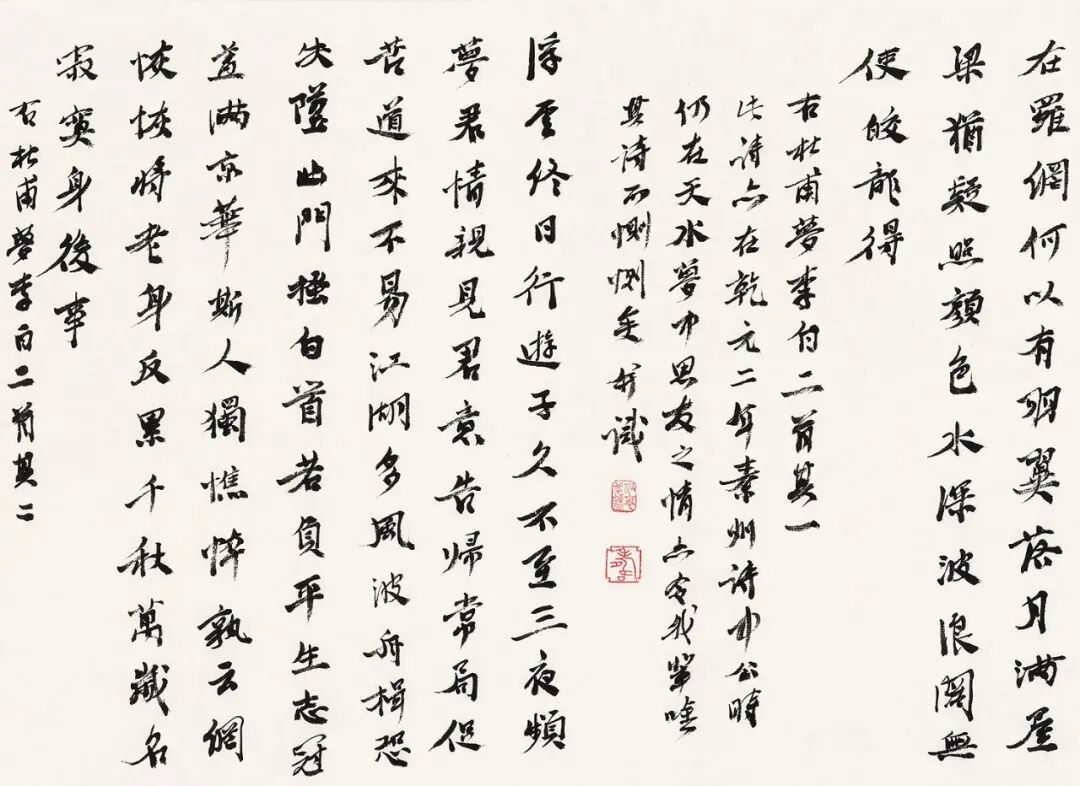 在羅網何以有羽翼落月滿屋
梁猶疑照顏色水深波浪闊無
使皎龍得
右杜甫夢李白二首其一
此詩亦在乾元二年秦州詩中公時
仍在天水夢中思友之情亦令我輩唫
其詩而惻惻矣并識
浮雲終日行遊子久不至三夜頻
夢君情親見君意告歸常局促
苦道來不易江湖多風波舟楫恐
失墜出門搔白首若負平生志冠
蓋滿京華斯人獨憔悴孰云網
恢恢將老身反累千秋萬歲名
寂寞身後事
右杜甫夢李白二首其二